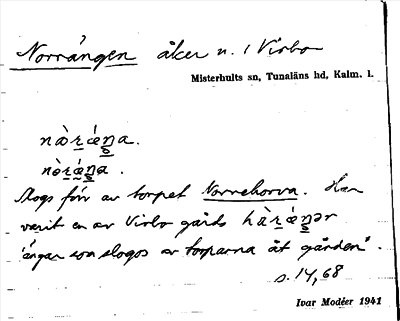 Norrängen åker n. i Virbo
Misterhults sn, Tunaläns hd, Kalm. l.
nòræ̀ŋa.
nòræ̀ŋa.
Slogs förr av torpet Norrehorva. Har
varit en av Virbo gårds hàræ̀ŋər
"ängar som slogos av torparna åt gården".
s. 14, 68
Ivar Modéer 1941